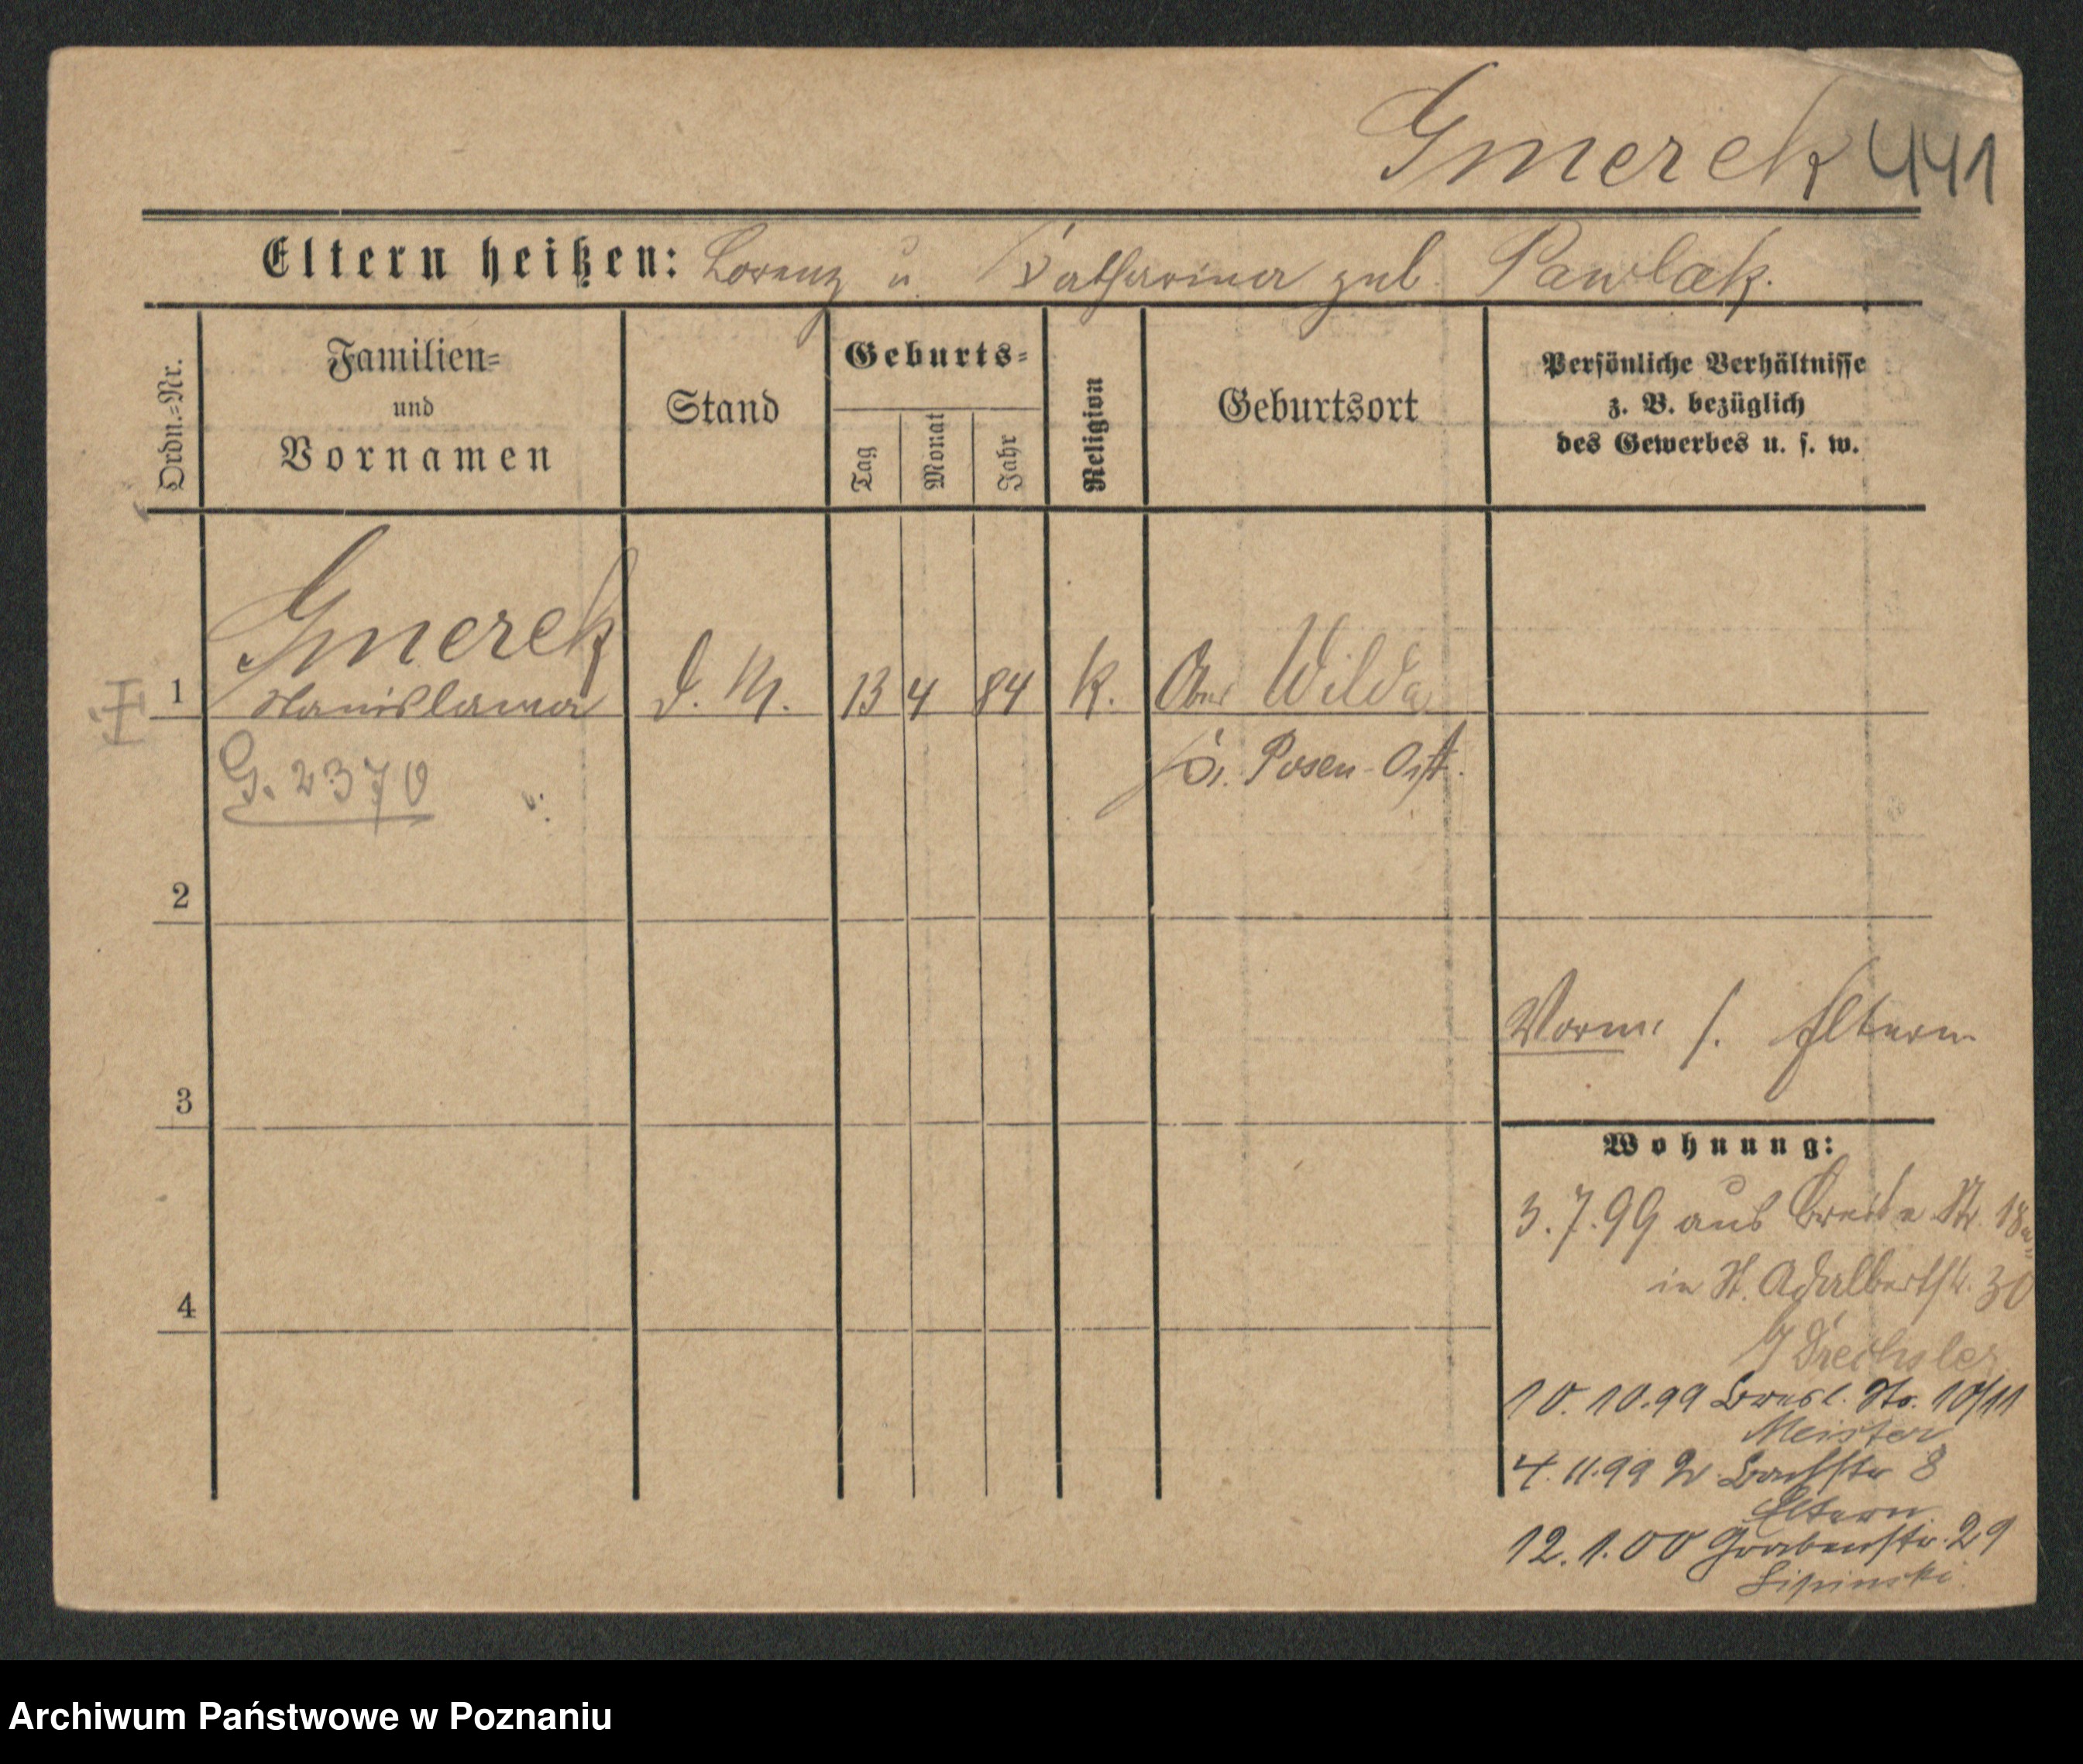 Gmerek 441
Eltern heißen: Lorenz u. Katharina geb. Pawlak.
Ordn.-Nr.
Familien-
und
Vornamen
Stand
Geburts-
Tag
Monat
Jahr
Religion
Geburtsort
Persönliche Verhältnisse
z. B. bezüglich
des Gewerbes u. s. w.
Gmerek
1 Stanislawa D. M. 13 4 84 K. Ober Wilda
G. 2370
Kr. Posen-Ost.
2
Vorm. s. Eltern
3
Wohnung:
3.7.99 aus Breite Str. 18
in St. Adalbertstr. 30
4
Drechsler
10.10.99 Bresl. Str. 10/11
Meister
4.11.99 Bachstr 8
Eltern
12.1.00 Grabenstr. 29
Lipinski
Archiwum Państwowe w Poznaniu